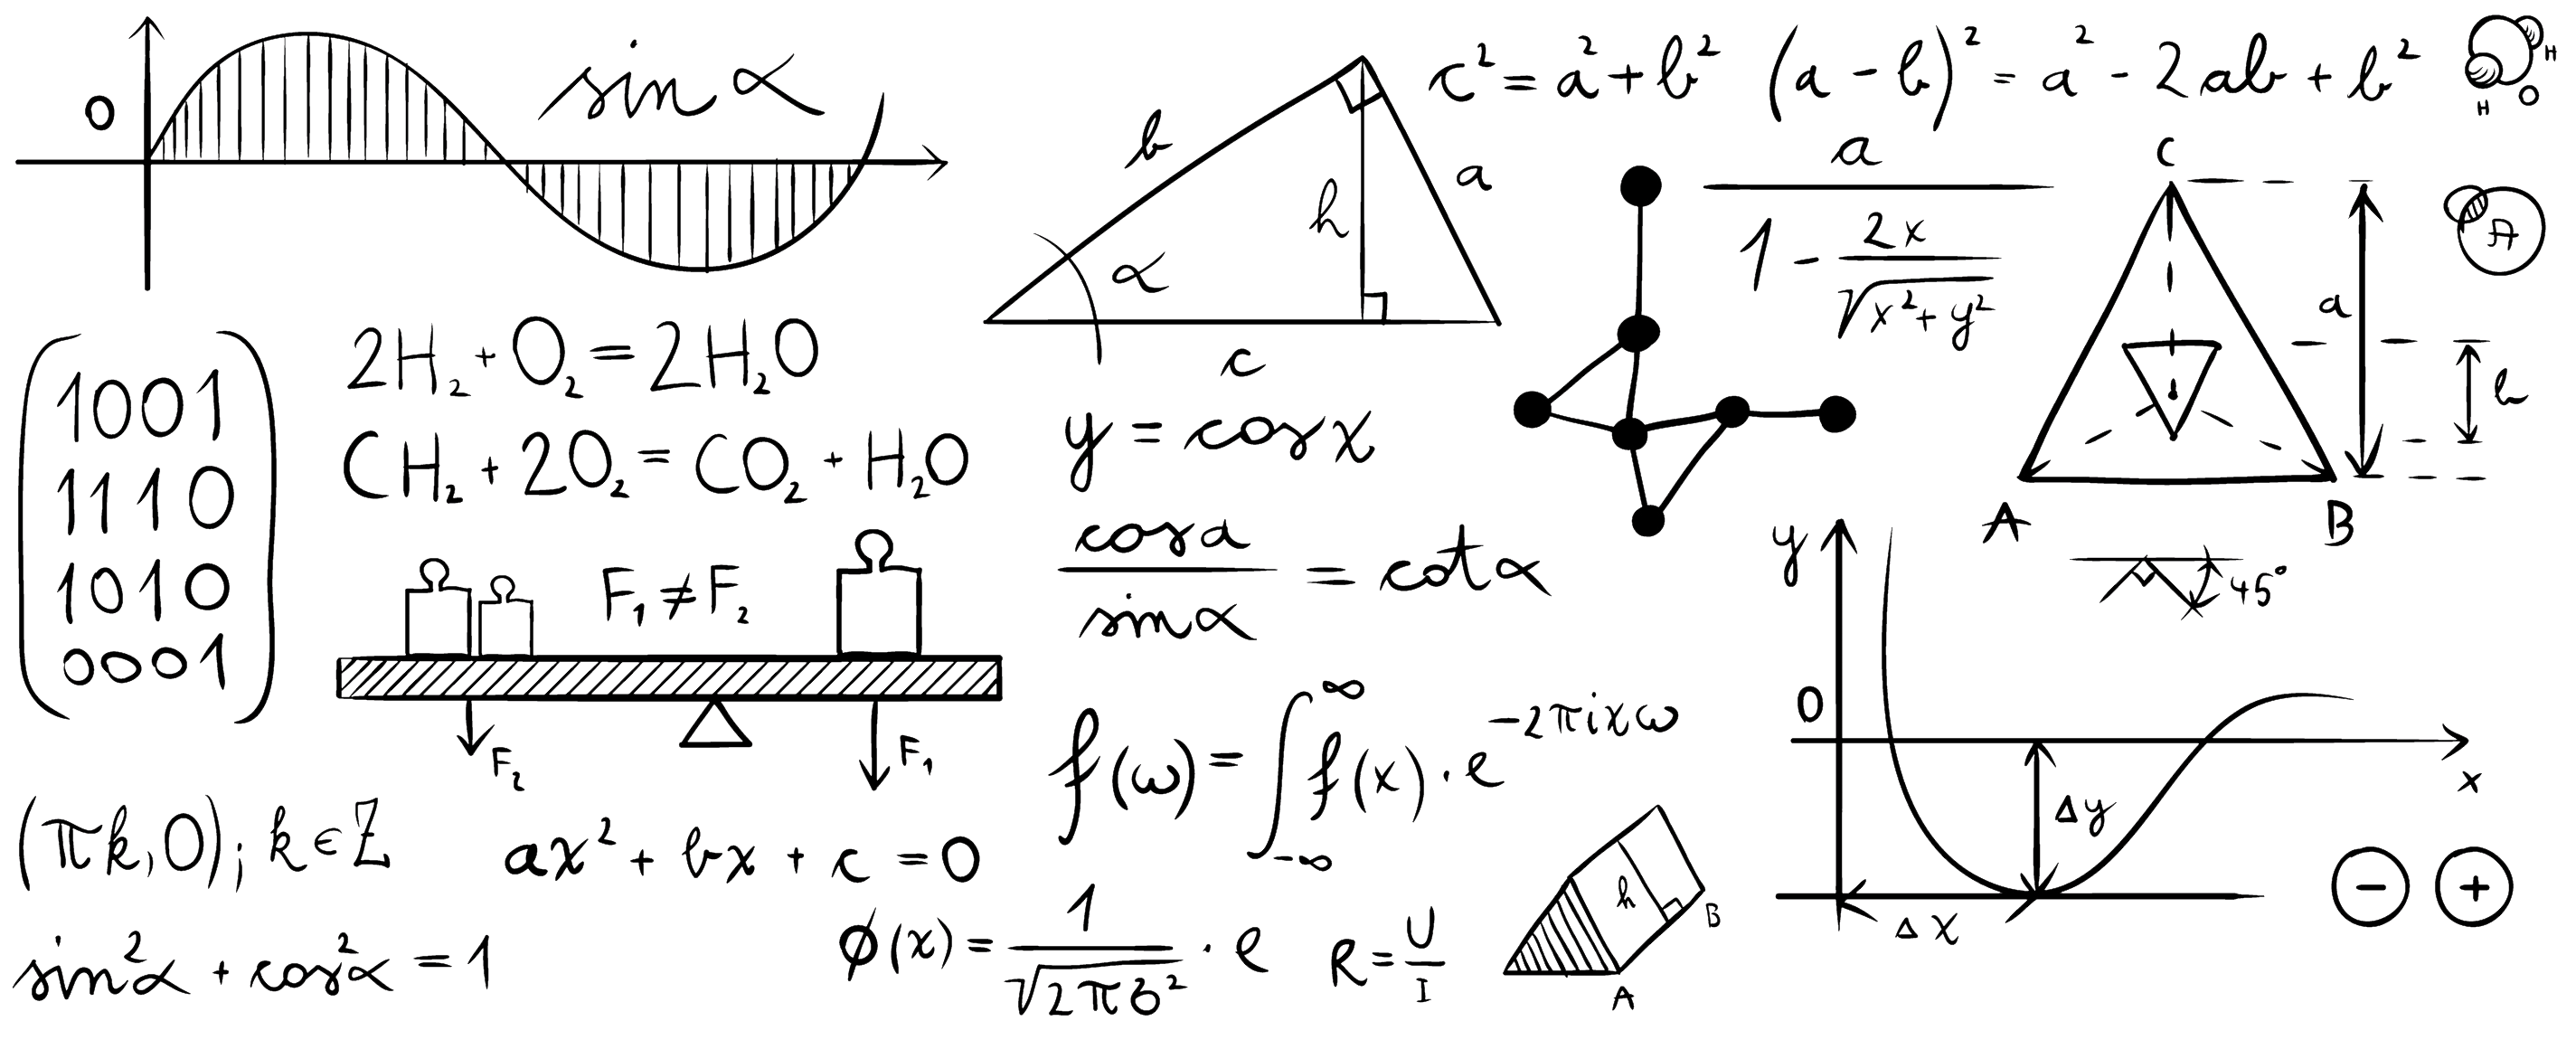 0
sin α
c² = a² + b²
(a - b)² = a² - 2ab + b²
H
H O
b
a
h
α
c
a
1 - 2x
√x² + y²
C
a
b
A
B
A
45°
1001
1110
1010
0001
2H₂ + O₂ = 2H₂O
CH₂ + 2O₂ = CO₂ + H₂O
F₁ ≠ F₂
F₂
F₁
y = cos x
cos a
sin α
= cot α
f(ω) = ∫ f(x) · e^-2πixω
∞
-∞
y
0
x
Δy
Δx
-
+
(πk, 0); k ∈ Z
ax² + bx + c = 0
sin²α + cos²α = 1
ϕ(x) = 1 · e
√2πσ²
R = U
I
h
B
A